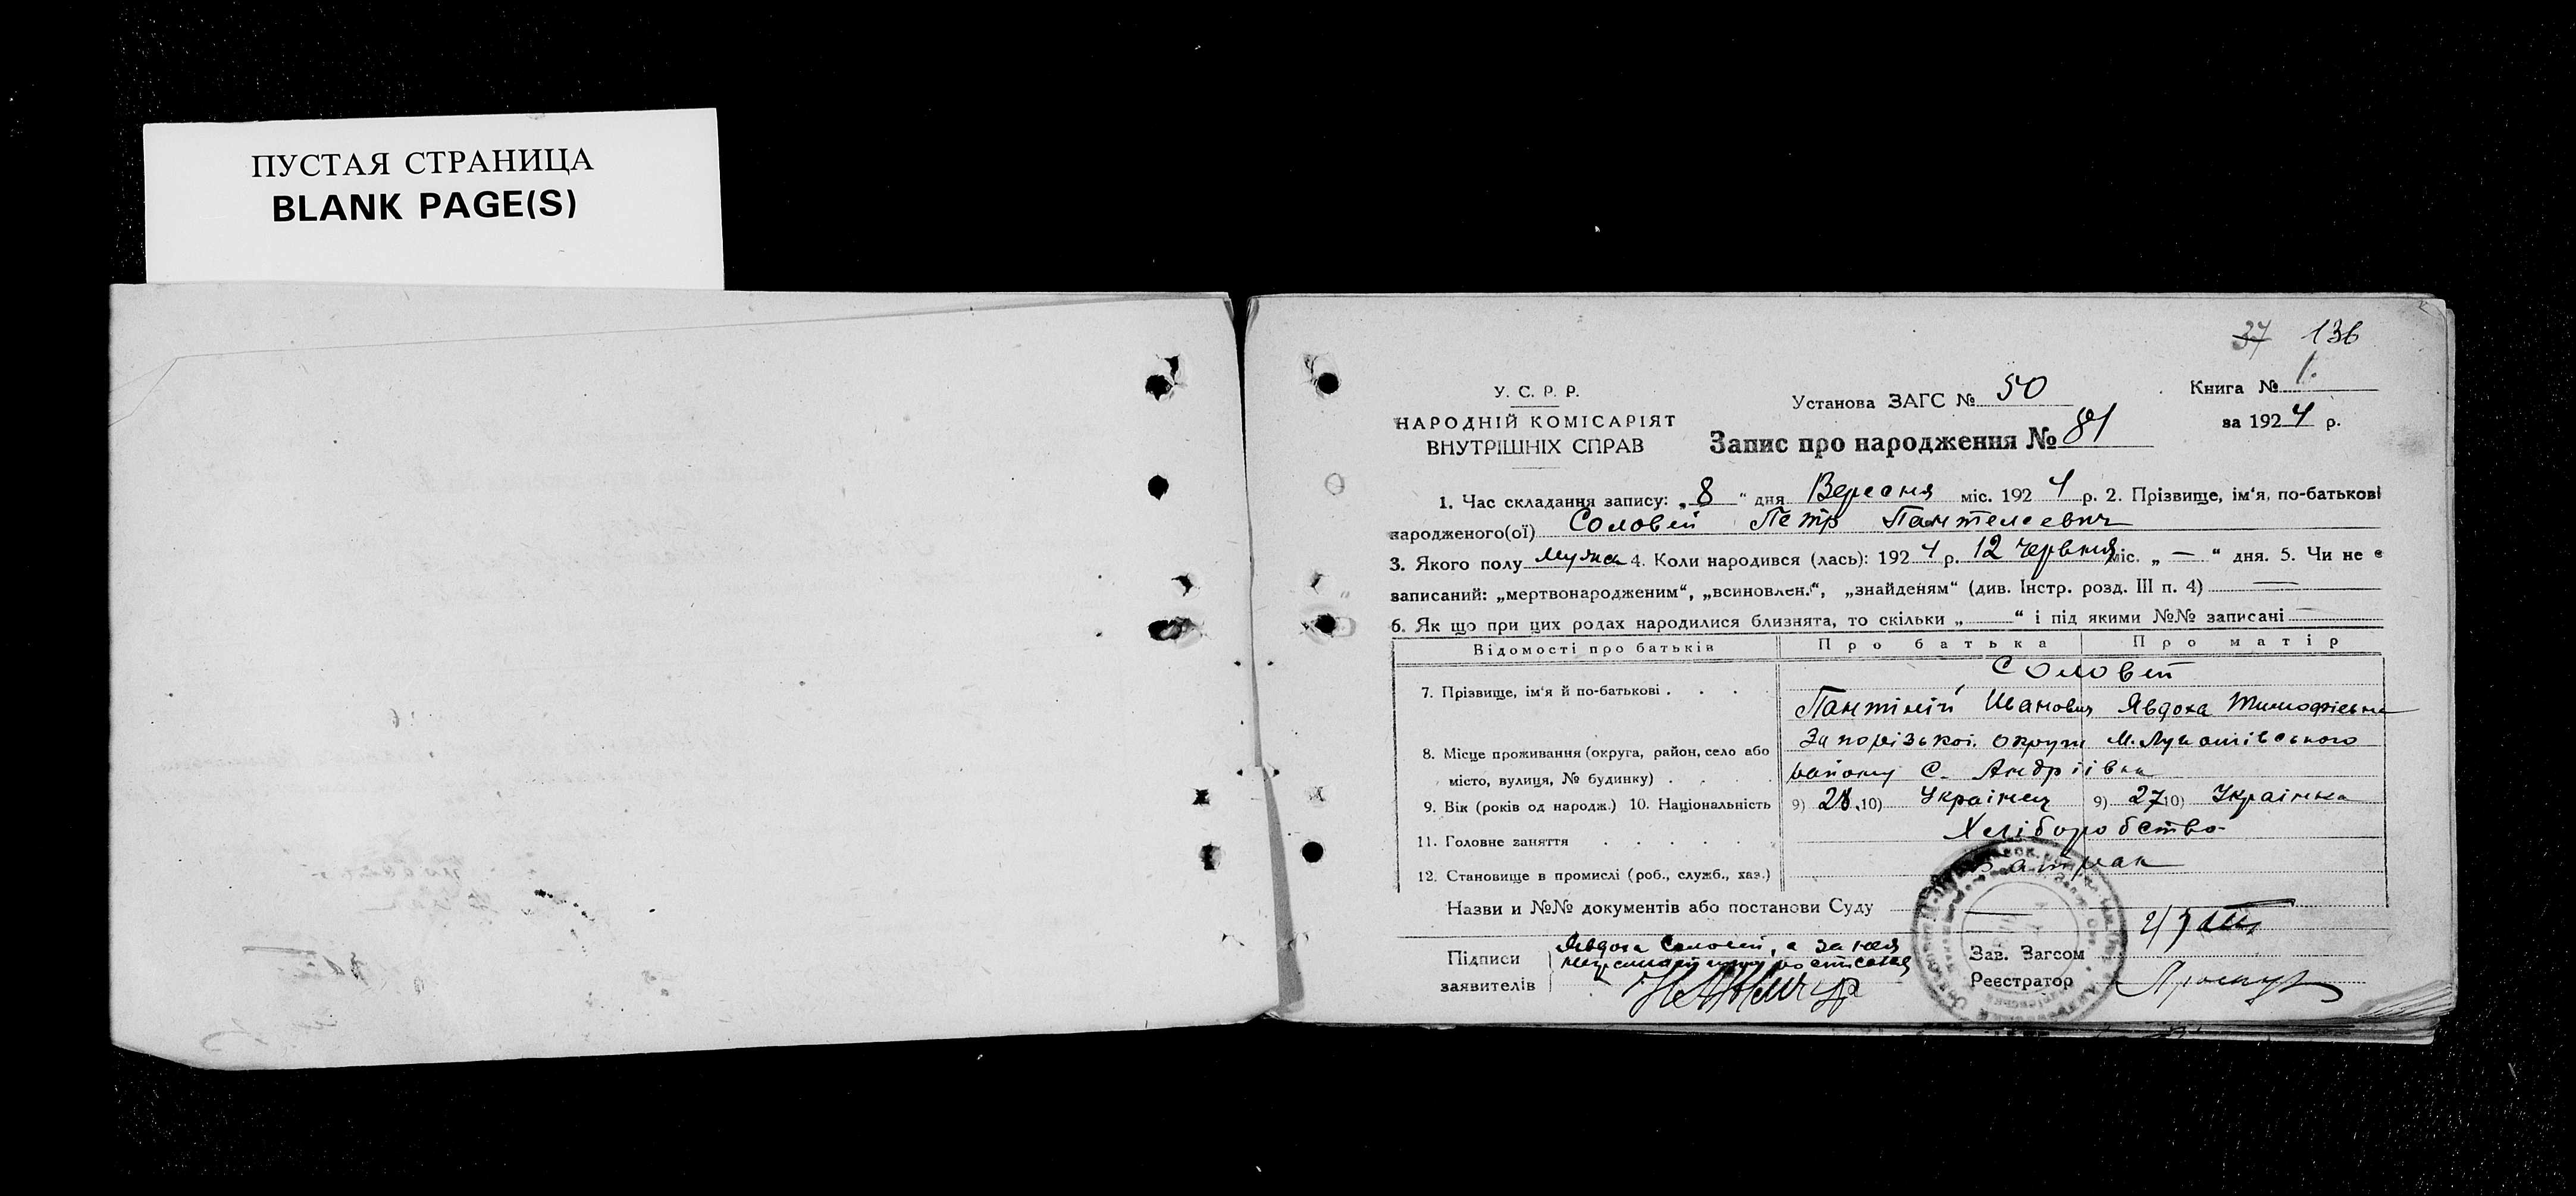 ПУСТАЯ СТРАНИЦА
BLANK PAGE(S)
37 136
У. С. Р. Р.
НАРОДНІЙ КОМІСАРІЯТ
ВНУТРІШНІХ СПРАВ
Установа ЗАГС № 50
Запис про народження № 81
Книга № 1.
за 1924 р.
1. Час складання запису: „8“ дня Вересня міс. 1924 р. 2. Прізвище, ім'я, по-батькові
народженого(ої) Соловей Петр Пантелеевич
3. Якого полу мужск 4. Коли народився (лась): 1924 р. 12 червня міс. „—“ дня. 5. Чи не є
записаний: „мертвонародженим“, „всиновлен.“, „знайденям“ (див. Інстр. розд. III п. 4)
6. Як що при цих родах народилися близнята, то скільки „——“ і під якими №№ записані
Відомості про батьків Про батька Про матір
7. Прізвище, ім'я й по-батькові . . . . Соловей
Пантілій Иванович Явдоха Тимофієвна
8. Місце проживання (округа, район, село або Запорізькоі округи М. Лукашівського
місто, вулиця, № будинку) . . . . району С. Андріівка
9. Вік (років од народж.) 10. Національність 9) 28 10) Украінец 9) 27 10) Украінка
11. Головне заняття . . . . . . Хліборобство
12. Становище в промислі (роб., служб., хаз.) Батрак
Назви и №№ документів або постанови Суду
Підписи Явдоха Соловей, а за нея
заявителів
неграмотну росписався
Зав. Загсом
Реєстратор